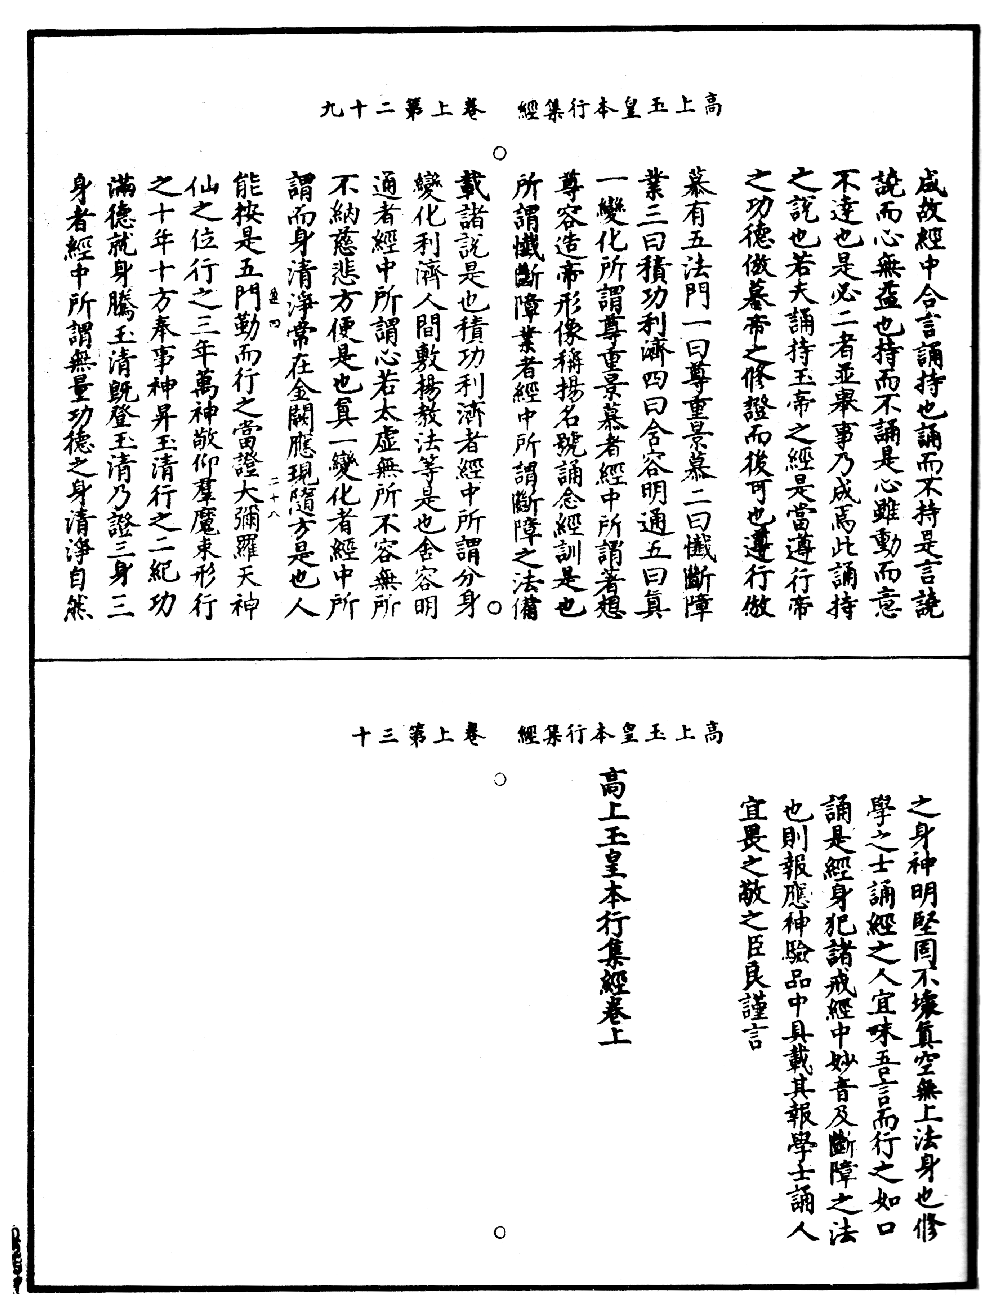 高上玉皇本行集經　卷上第二十九
咸故經中合言誦持也誦而不持是言譊
譊而心無益也持而不誦是心雖動而意
不達也是必二者並舉事乃成焉此誦持
之說也若夫誦持玉帝之經是當遵行帝
之功德倣慕帝之修證而後可也遵行倣
慕有五法門一曰尊重景慕二曰懴斷障
業三曰積功利濟四曰含容明通五曰真
一變化所謂尊重景慕者經中所謂著想
尊容造帝形像稱揚名號誦念經訓是也
所謂懴斷障業者經中所謂斷障之法備
載諸說是也積功利濟者經中所謂分身
變化利濟人間敷揚教法等是也含容明
通者經中所謂心若太虛無所不容無所
不納慈悲方便是也真一變化者經中所
謂而身清淨常在金闕應現隨方是也人
二十八
能按是五門勤而行之當證大彌羅天神
仙之位行之三年萬神敬仰羣魔束形行
之十年十方奉事神昇玉清行之二紀功
滿德就身騰玉清旣登玉清乃證三身三
身者經中所謂無量功德之身清淨自然
高上玉皇本行集經　卷上第三十
之身神明堅固不壞真空無上法身也修
學之士誦經之人宜味吾言而行之如口
誦是經身犯諸戒經中妙音及斷障之法
也則報應神驗品中具載其報學士誦人
宜畏之敬之臣良謹言
高上玉皇本行集經卷上